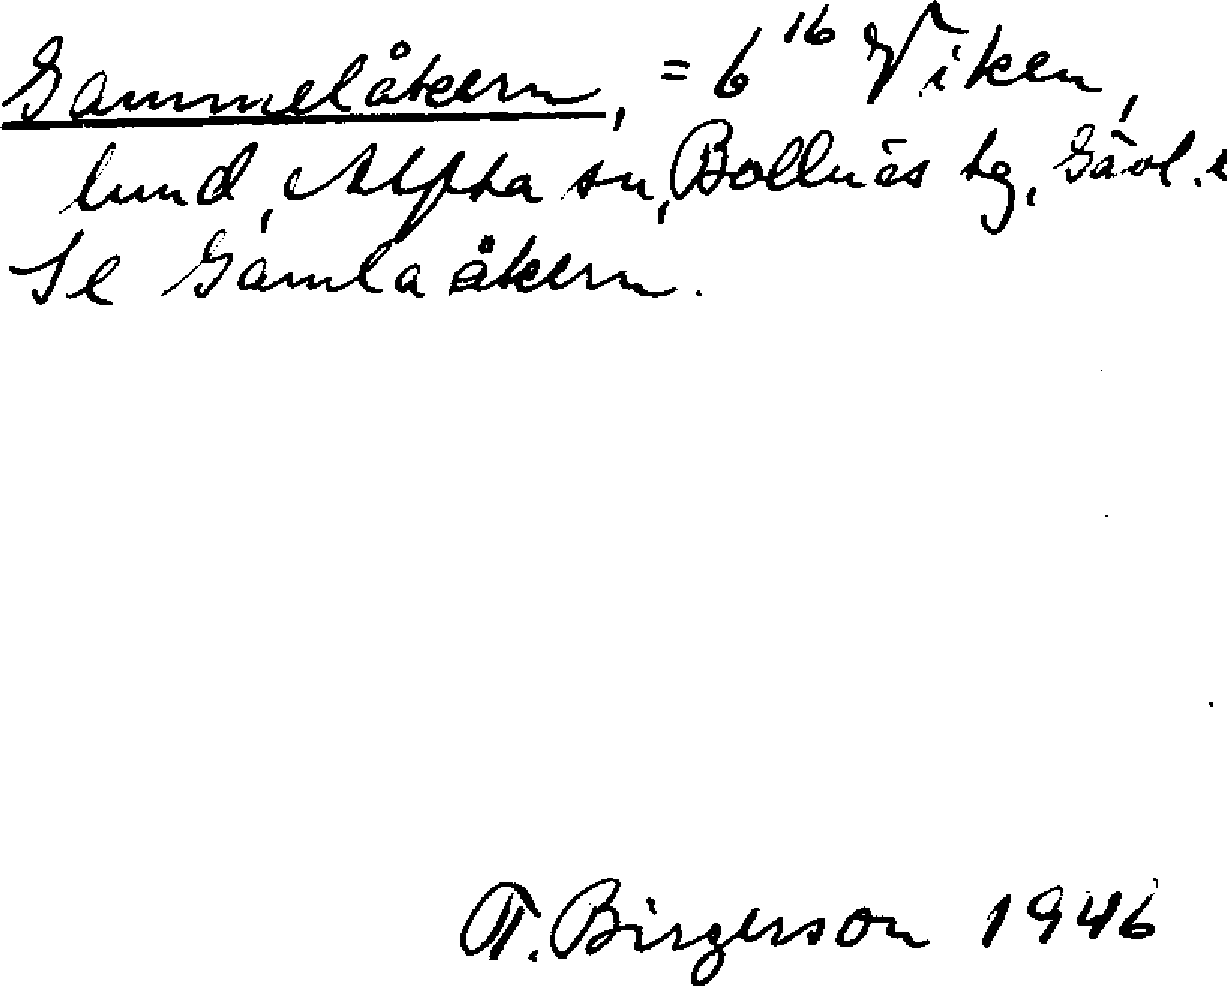 Gammelåkern, = 6 16 Viken,
lund, Alfta sn, Bollnäs tg, Gävl. l
Se Gamla åkern.
T. Birgerson 1946